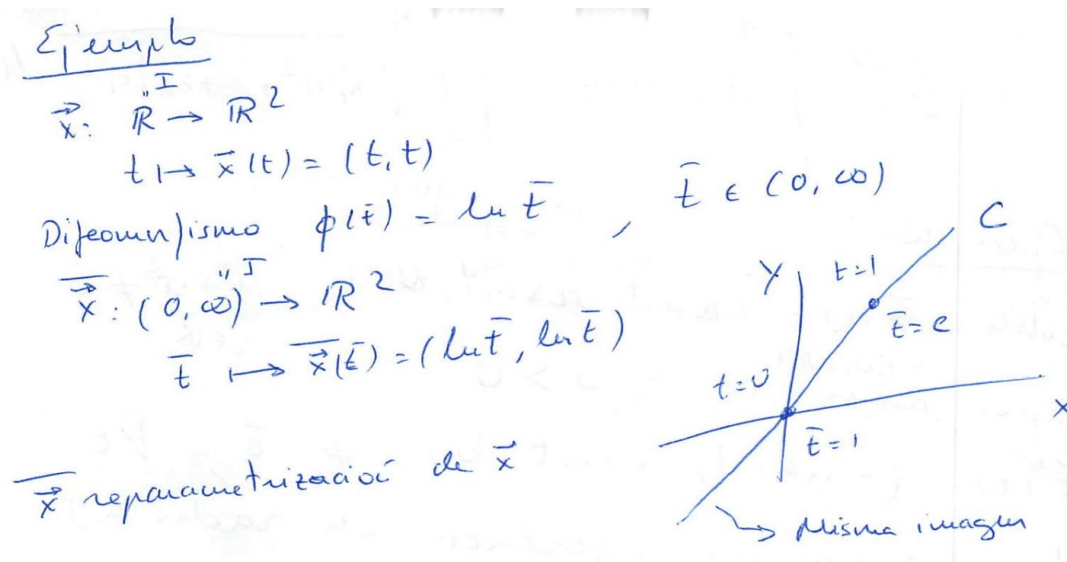 Ejemplo
I
"
x⃗: ℝ → ℝ²
t ↦ x⃗(t) = (t, t)
Difeomorfismo ϕ(t̄) = ln t̄ , t̄ ∈ (0, ∞)
" J
x̄⃗: (0, ∞) → ℝ²
t̄ ↦ x̄⃗(t̄) = (ln t̄, ln t̄)
x̄⃗ reparametrización de x⃗
C
Y
t=1
t̄=e
t=0
X
t̄=1
Misma imagen